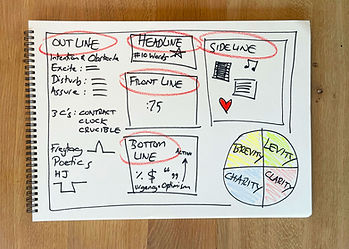 OUTLINE
Intention & Obstacle
Excite:
Disturb:
Assure:
3 C's: CONTRACT
CLOCK
CRUCIBLE
Freytag
Poetics
HJ
HEADLINE
#10 Words
FRONT LINE
:75
BOTTOM
LINE
ACTION
% $ " "
Urgency + Optimism
SIDELINE
BREVITY
LEVITY
CHARITY
CLARITY